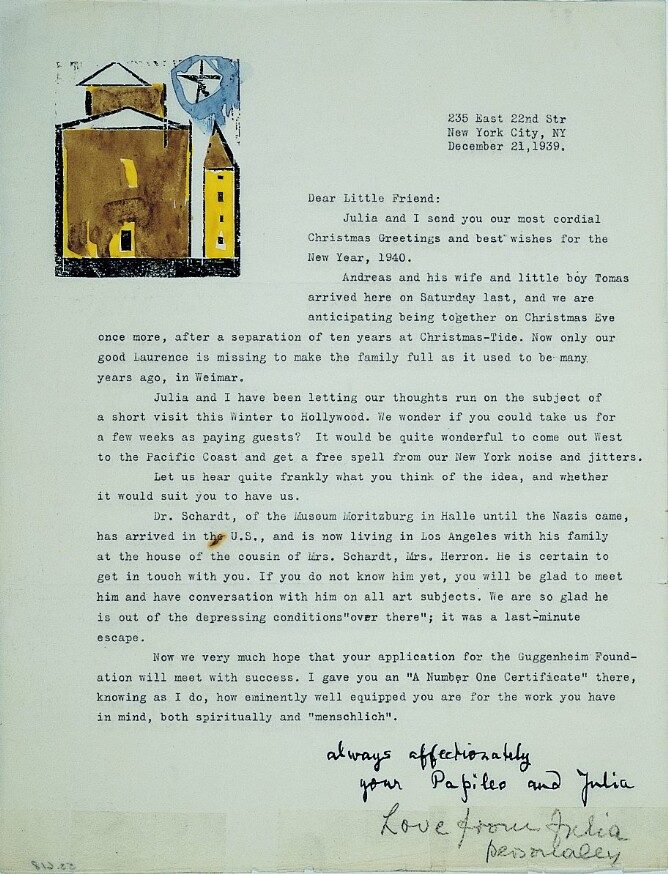 235 East 22nd Str
New York City, NY
December 21,1939.
Dear Little Friend:
Julia and I send you our most cordial
Christmas Greetings and best wishes for the
New Year, 1940.
Andreas and his wife and little boy Tomas
arrived here on Saturday last, and we are
anticipating being together on Christmas Eve
once more, after a separation of ten years at Christmas-Tide. Now only our
good Laurence is missing to make the family full as it used to be many
years ago, in Weimar.
Julia and I have been letting our thoughts run on the subject of
a short visit this Winter to Hollywood. We wonder if you could take us for
a few weeks as paying guests?  It would be quite wonderful to come out West
to the Pacific Coast and get a free spell from our New York noise and jitters.
Let us hear quite frankly what you think of the idea, and whether
it would suit you to have us.
Dr. Schardt, of the Museum Moritzburg in Halle until the Nazis came,
has arrived in the U.S., and is now living in Los Angeles with his family
at the house of the cousin of Mrs. Schardt, Mrs. Herron. He is certain to
get in touch with you. If you do not know him yet, you will be glad to meet
him and have conversation with him on all art subjects. We are so glad he
is out of the depressing conditions"over there"; it was a last-minute
escape.
Now we very much hope that your application for the Guggenheim Found-
ation will meet with success. I gave you an "A Number One Certificate" there,
knowing as I do, how eminently well equipped you are for the work you have
in mind, both spiritually and "menschlich".
always affectionately
your Papileo and Julia
Love from Julia
personaley